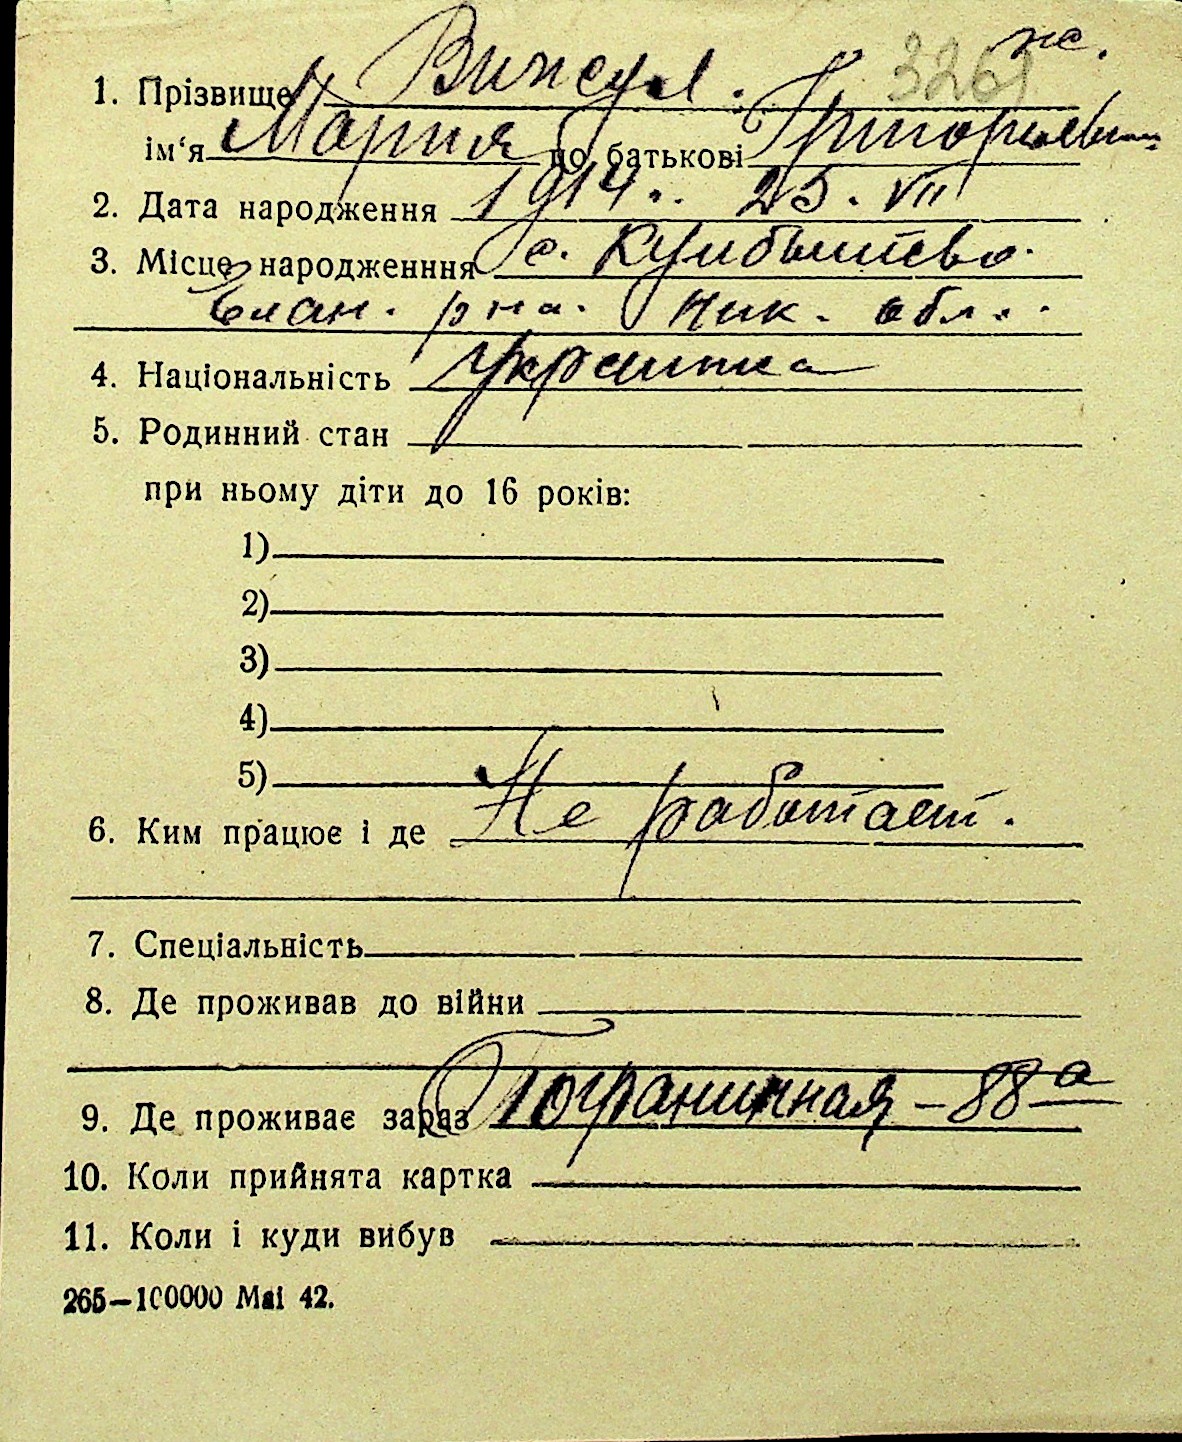 ж.
3261
1. Прізвище Винсул.
ім‘я Мария по батькові Григорьевн
2. Дата народження 1914.. 25. VII
3. Місце народженння с. Куйбышево.
Влан. рна. Ник. обл..
4. Національність украинка
5. Родинний стан
при ньому діти до 16 років:
1)
2)
3)
4)
5)
6. Ким працює і де Не работает.
7. Спеціальність
8. Де проживав до війни
9. Де проживає зараз Пограничная – 88 а
10. Коли прийнята картка
11. Коли і куди вибув
265—100000 Mai 42.